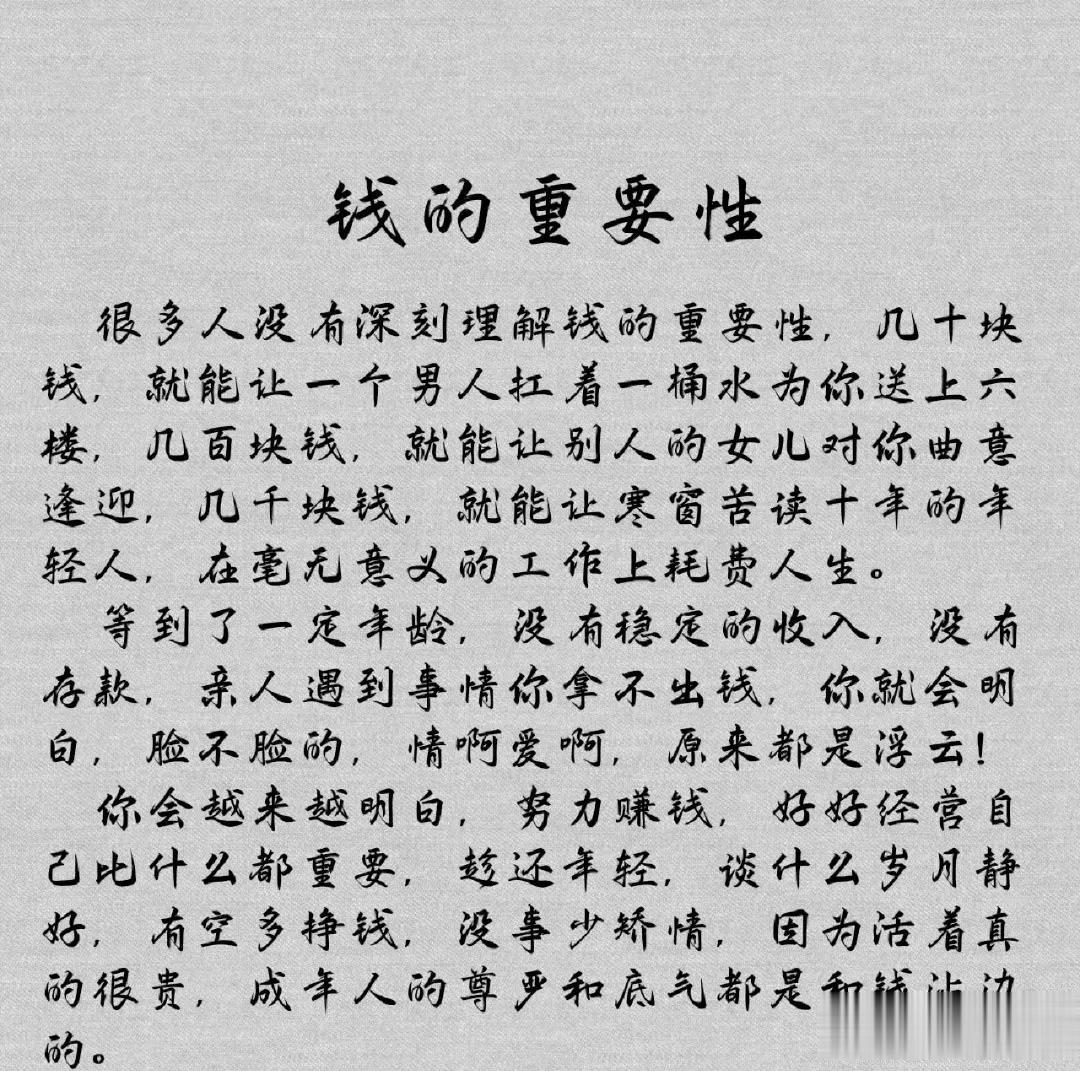 钱的重要性
很多人没有深刻理解钱的重要性，几十块
钱，就能让一个男人扛着一桶水为你送上六
楼，几百块钱，就能让别人的女儿对你曲意
逢迎，几千块钱，就能让寒窗苦读十年的年
轻人，在毫无意义的工作上耗费人生。
等到了一定年龄，没有稳定的收入，没有
存款，亲人遇到事情你拿不出钱，你就会明
白，脸不脸的，情啊爱啊，原来都是浮云！
你会越来越明白，努力赚钱，好好经营自
己比什么都重要，趁还年轻，谈什么岁月静
好，有空多挣钱，没事少矫情，因为活着真
的很贵，成年人的尊严和底气都是和钱沾边
的。